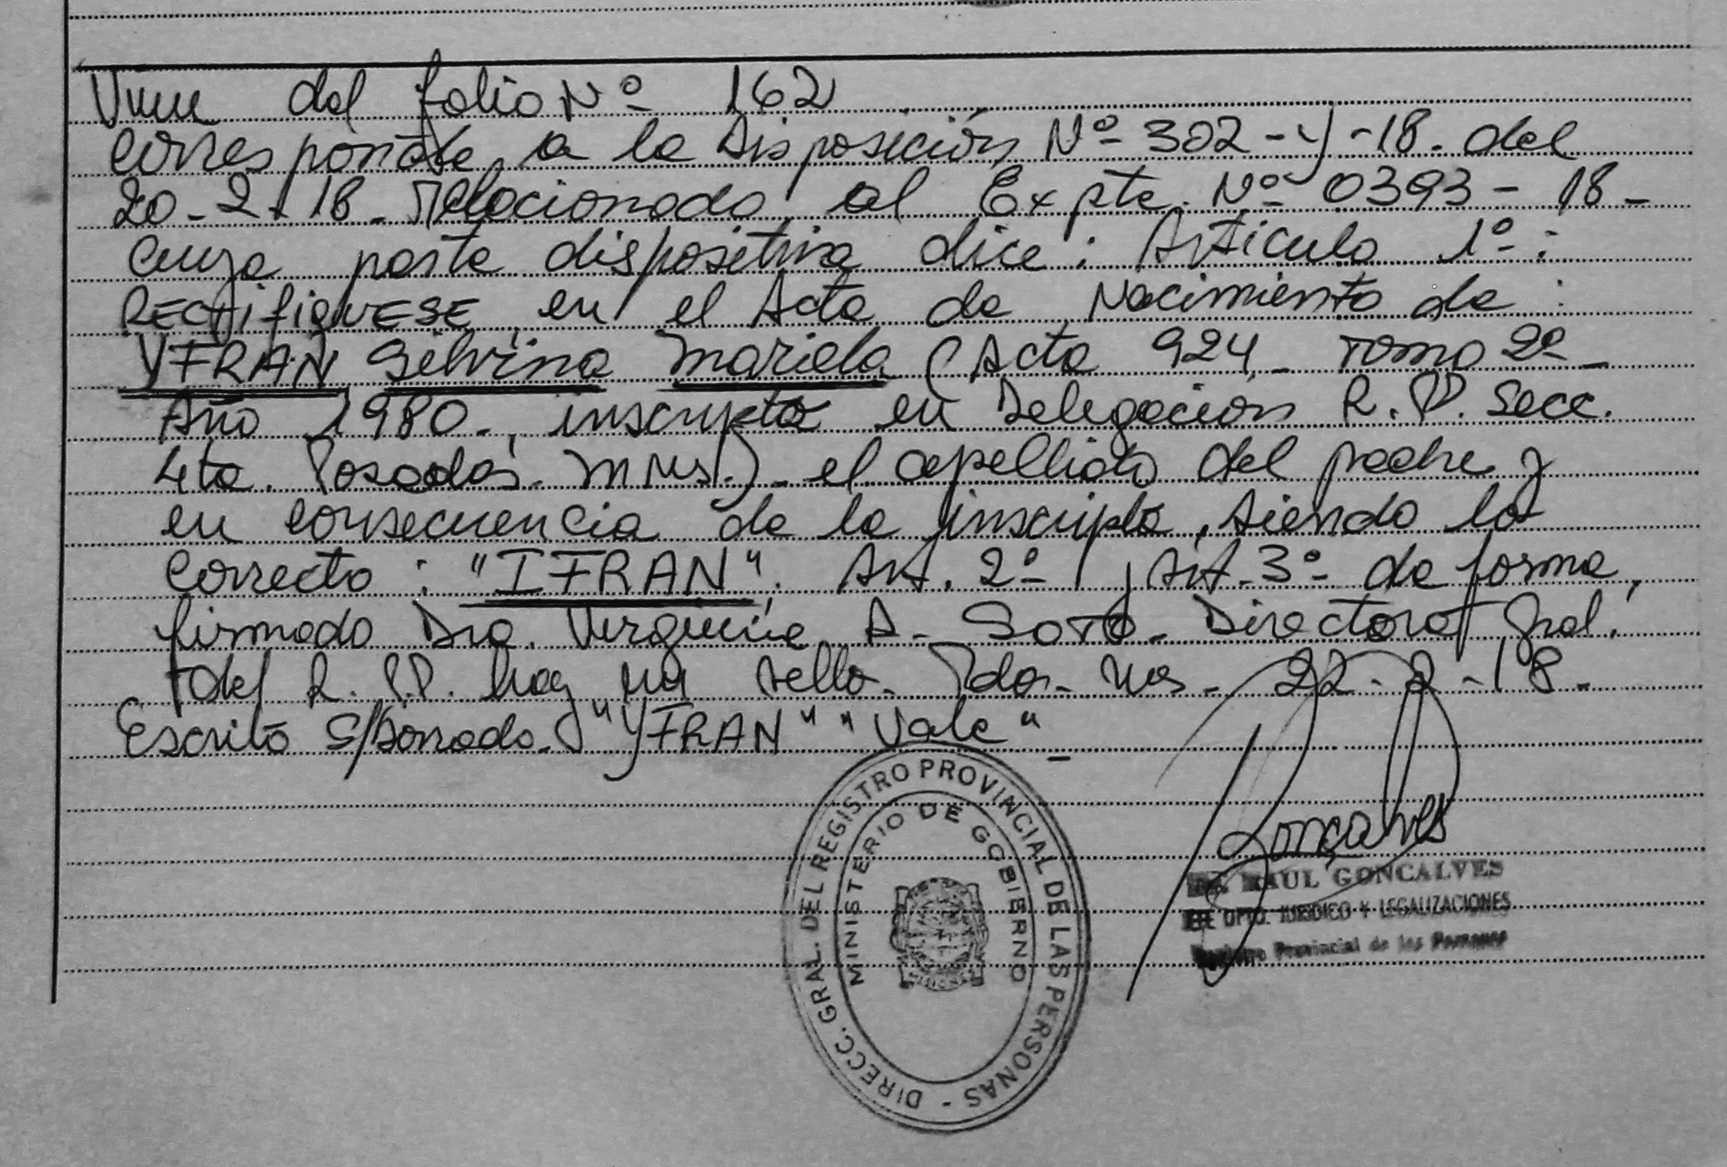 Viene del folio Nº 162
corresponde a la Disposición Nº 302-Y-18. del
20-2-18. relacionado al Expte. Nº 0393-18-
cuya parte dispositiva dice: Artículo 1º:
RECTIFIQUESE en el Acta de Nacimiento de:
YFRAN Silvina Mariela (Acta 924 - Tomo 2º -
Año 1980-, inscripta en Delegación R.P. Secc.
4ta. Posadas. Mnes.)- el apellido del padre y
en consecuencia de la inscripta, siendo lo
correcto: "IFRAN". Art. 2º y Art. 3º de forma,
firmado Dra. Virginia A. SOTO. Directora Gral.
del R.P.P. hay un sello. Pdas. Mns. 22-2-18.
Escrito S/borrado. "YFRAN" "Vale"-
DIRECC. GRAL. DEL REGISTRO PROVINCIAL DE LAS PERSONAS -
MINISTERIO DE GOBIERNO
Gonçalves
RAUL GONCALVES
DPTO. JURIDICO Y LEGALIZACIONES
Registro Provincial de las Personas